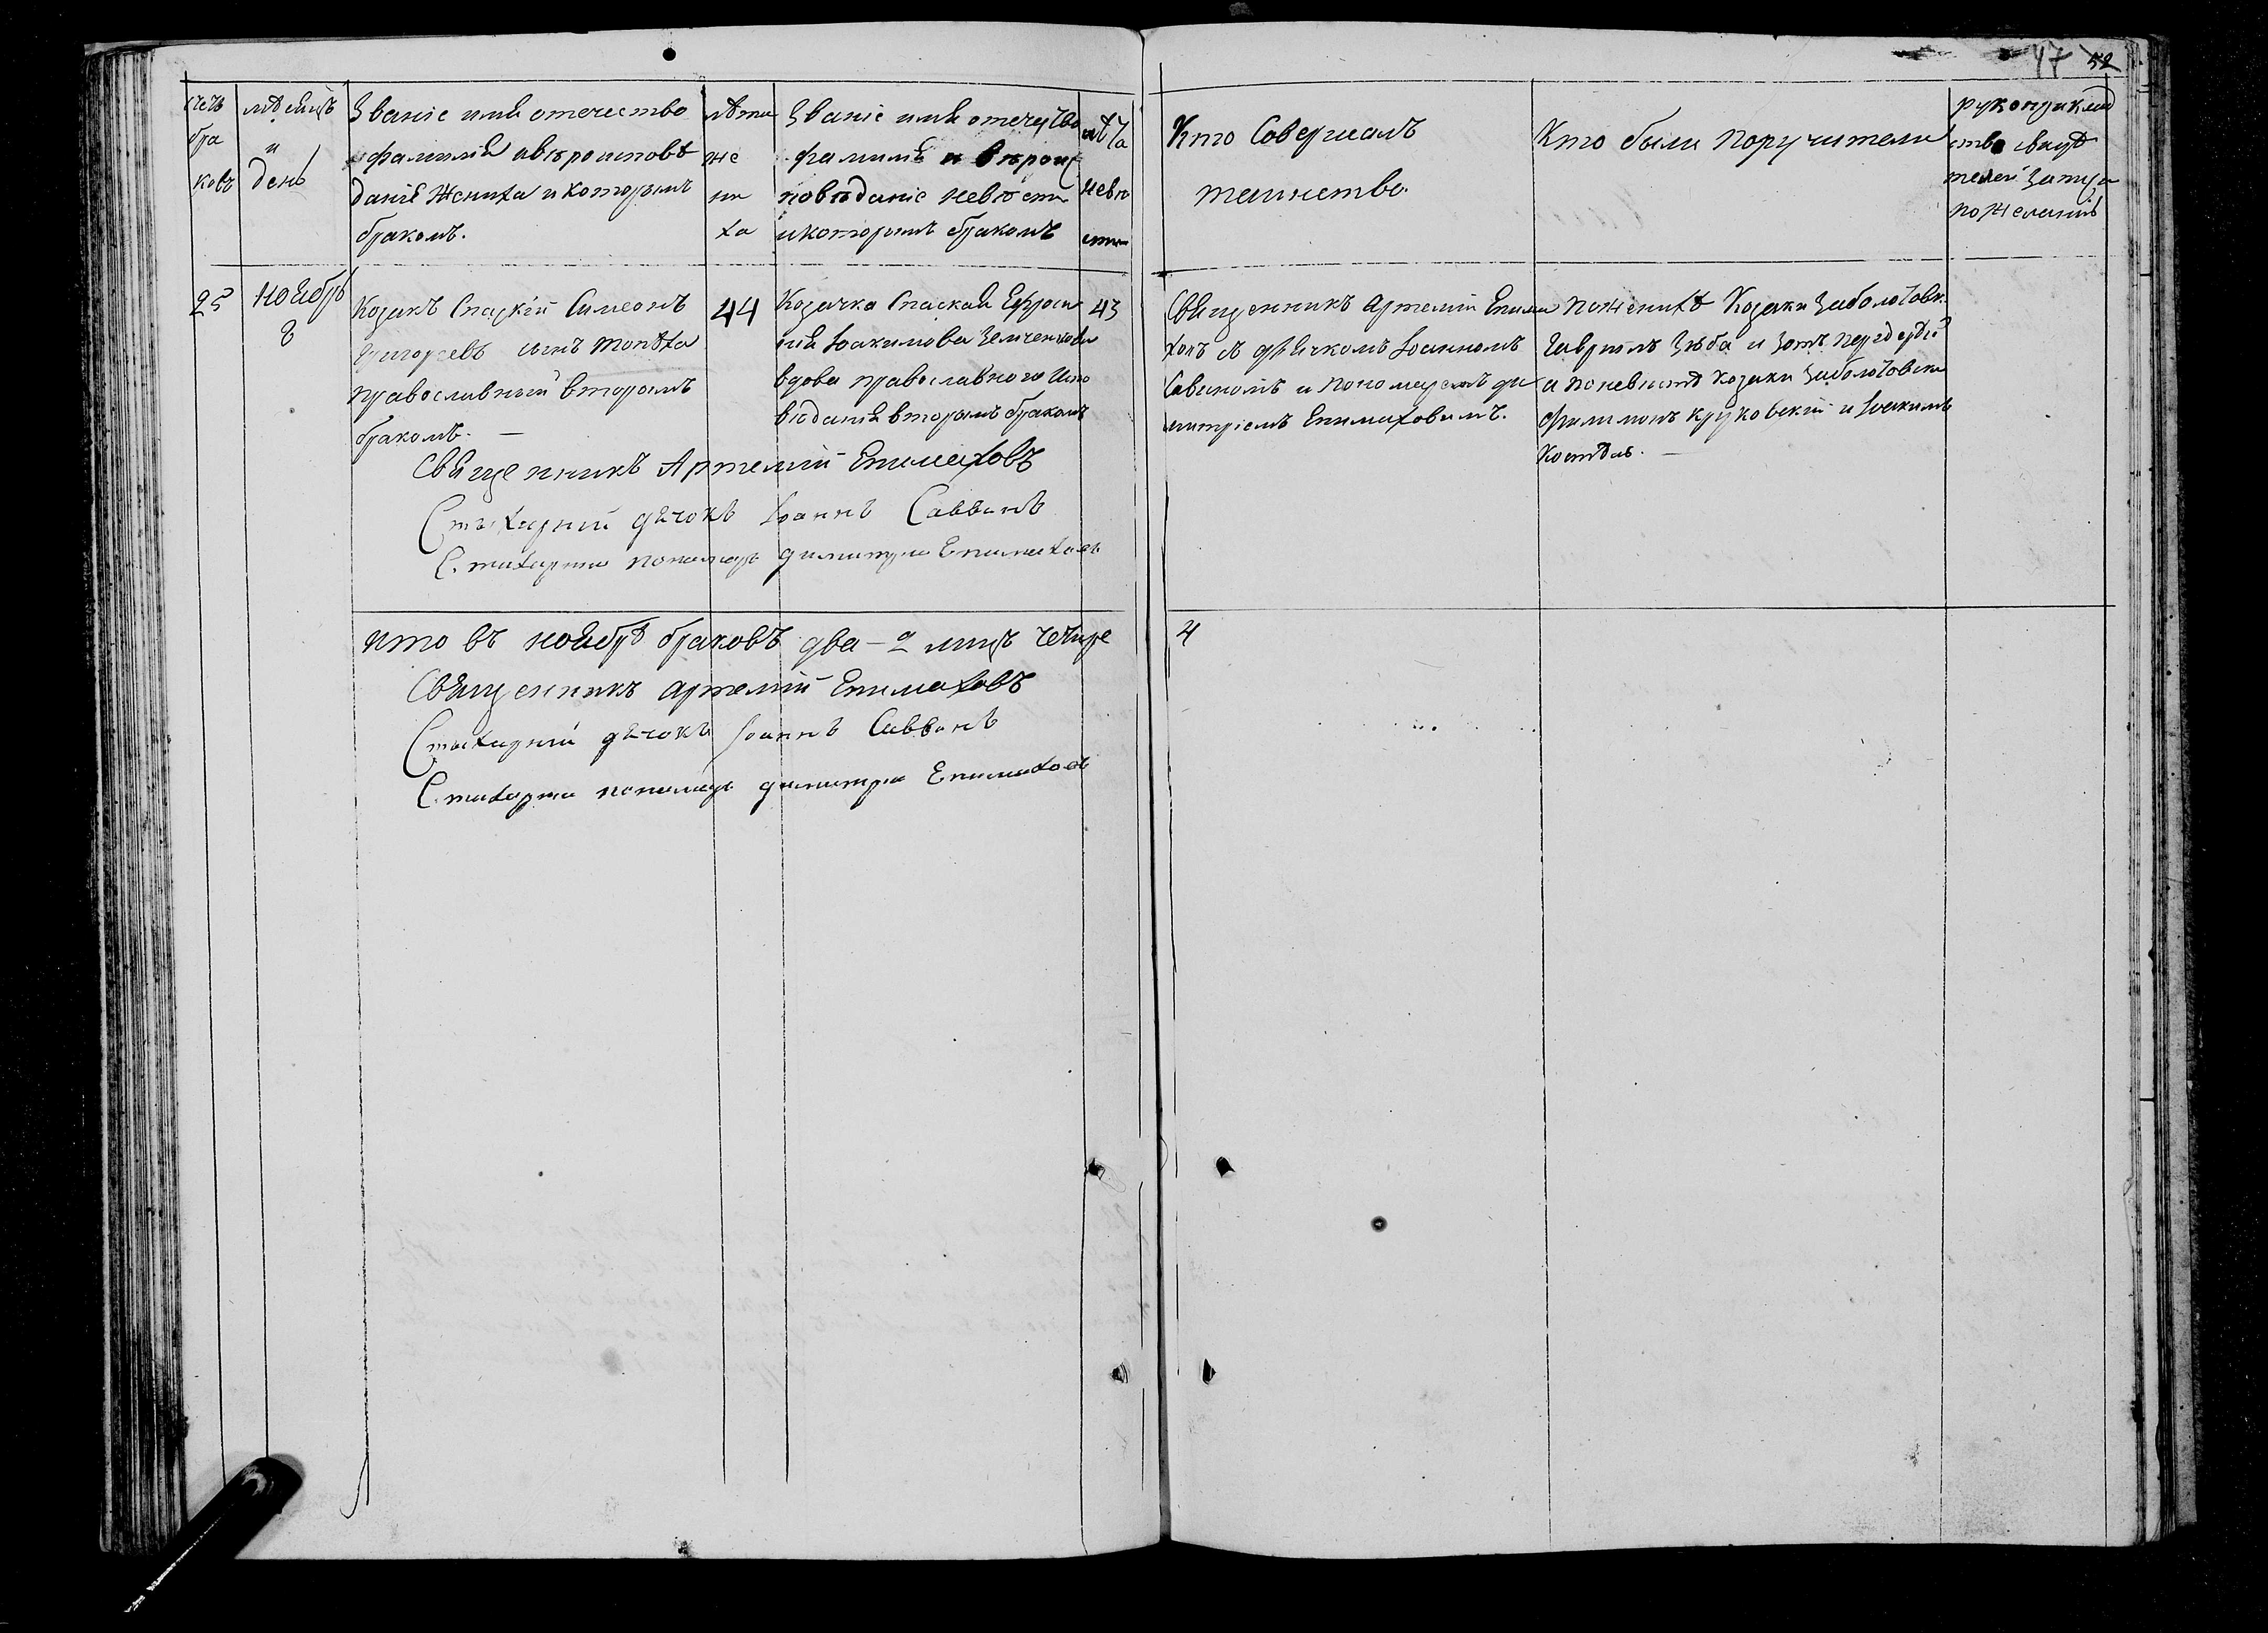 47 52
счетъ
бра
ковъ
мѣсяцъ
и
день
Званіе имя отечество
фамилія авѣроисповѣ
даніе Жениха и которымъ
бракомъ.
лѣта
же
ни
ха
Званіе имя отечество
фамилія и вѣроис
повѣданіе невѣсты
икоторымъ бракомъ
лѣта
невѣ
сты
Кто Совершалъ
таинство.
Кто были Поручители
рукоприклад
ство свидѣ
телей запису
по желанію
25
ноября
8
Козакъ Спаскій Симеонъ
Григорьевъ сынъ
православный вторымъ
бракомъ. —
44
Козачка Спаская Ефроси
нія Іоакимова
вдова православного Испо
вѣданія вторымъ бракомъ
43
Священникъ Артемій Епима
ховъ съ дьячкомъ Іоанномъ
Савиномъ и пономаремъ Ди
митріемъ Епимаховымъ.
По женихѣ Козаки Заболотовск.
Гавріилъ и Зотъ
а по невѣстѣ козаки Заболотовски
Филимонъ Круковскій и Іоакимъ
Священникъ Артемій Епимаховъ
Стихарный дячокъ Іоаннъ Саввинъ
Стихарный пономарь Димитрій Епимаховъ
итого въ ноябрѣ браковъ два — а лицъ четыре
4
Священникъ Артемій Епимаховъ
Стихарный дячокъ Іоаннъ Саввинъ
Стихарный пономарь Димитрій Епимаховъ